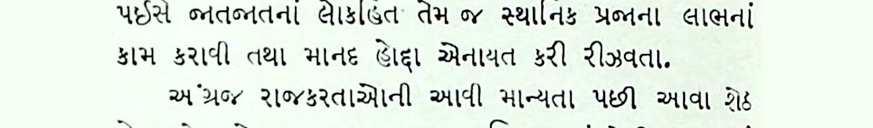 પઈસે જાતજાતનાં લોકહિત તેમ જ સ્થાનિક પ્રજાના લાભનાં
કામ કરાવી તથા માનદ હોદ્દા એનાયત કરી રીઝવતા.
અંગ્રેજ રાજકરતાઓની આવી માન્યતા પછી આવા શેઠ